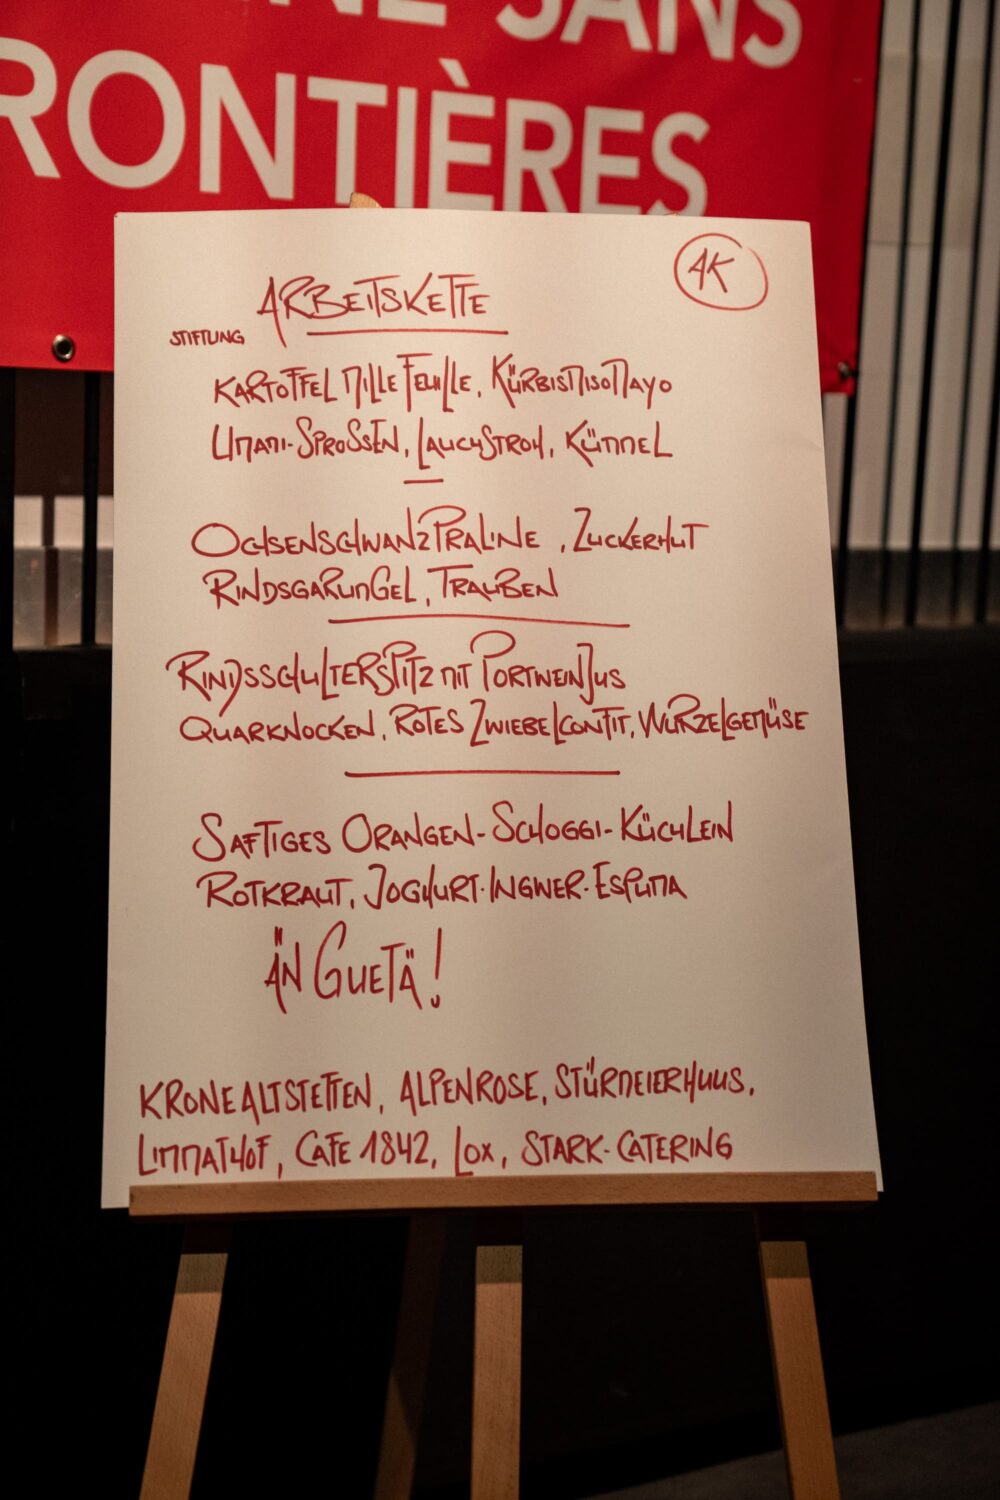 NE SANS
RONTIÈRES
AK
ARBEITSKETTE
STIFTUNG
KARTOFFEL MILLE FEUILLE, KÜRBISMISOMAYO
UMAMI-SPROSSEN, LAUCHSTROH, KÜMMEL
OCHSENSCHWANZPRALINE, ZUCKERHUT
RINDSGARUMGEL, TRAUBEN
RINDSSCHULTERSPITZ MIT PORTWEINJUS
QUARKNOCKEN, ROTES ZWIEBELCONFIT, WURZELGEMÜSE
SAFTIGES ORANGEN-SCHOGGI-KÜCHLEIN
ROTKRAUT, JOGHURT-INGWER-ESPUMA
ÄN GUETÄ!
KRONE ALTSTETTEN, ALPENROSE, STÜRMEIERHUUS,
LIMMATHOF, CAFE 1842, LOX, STARK-CATERING